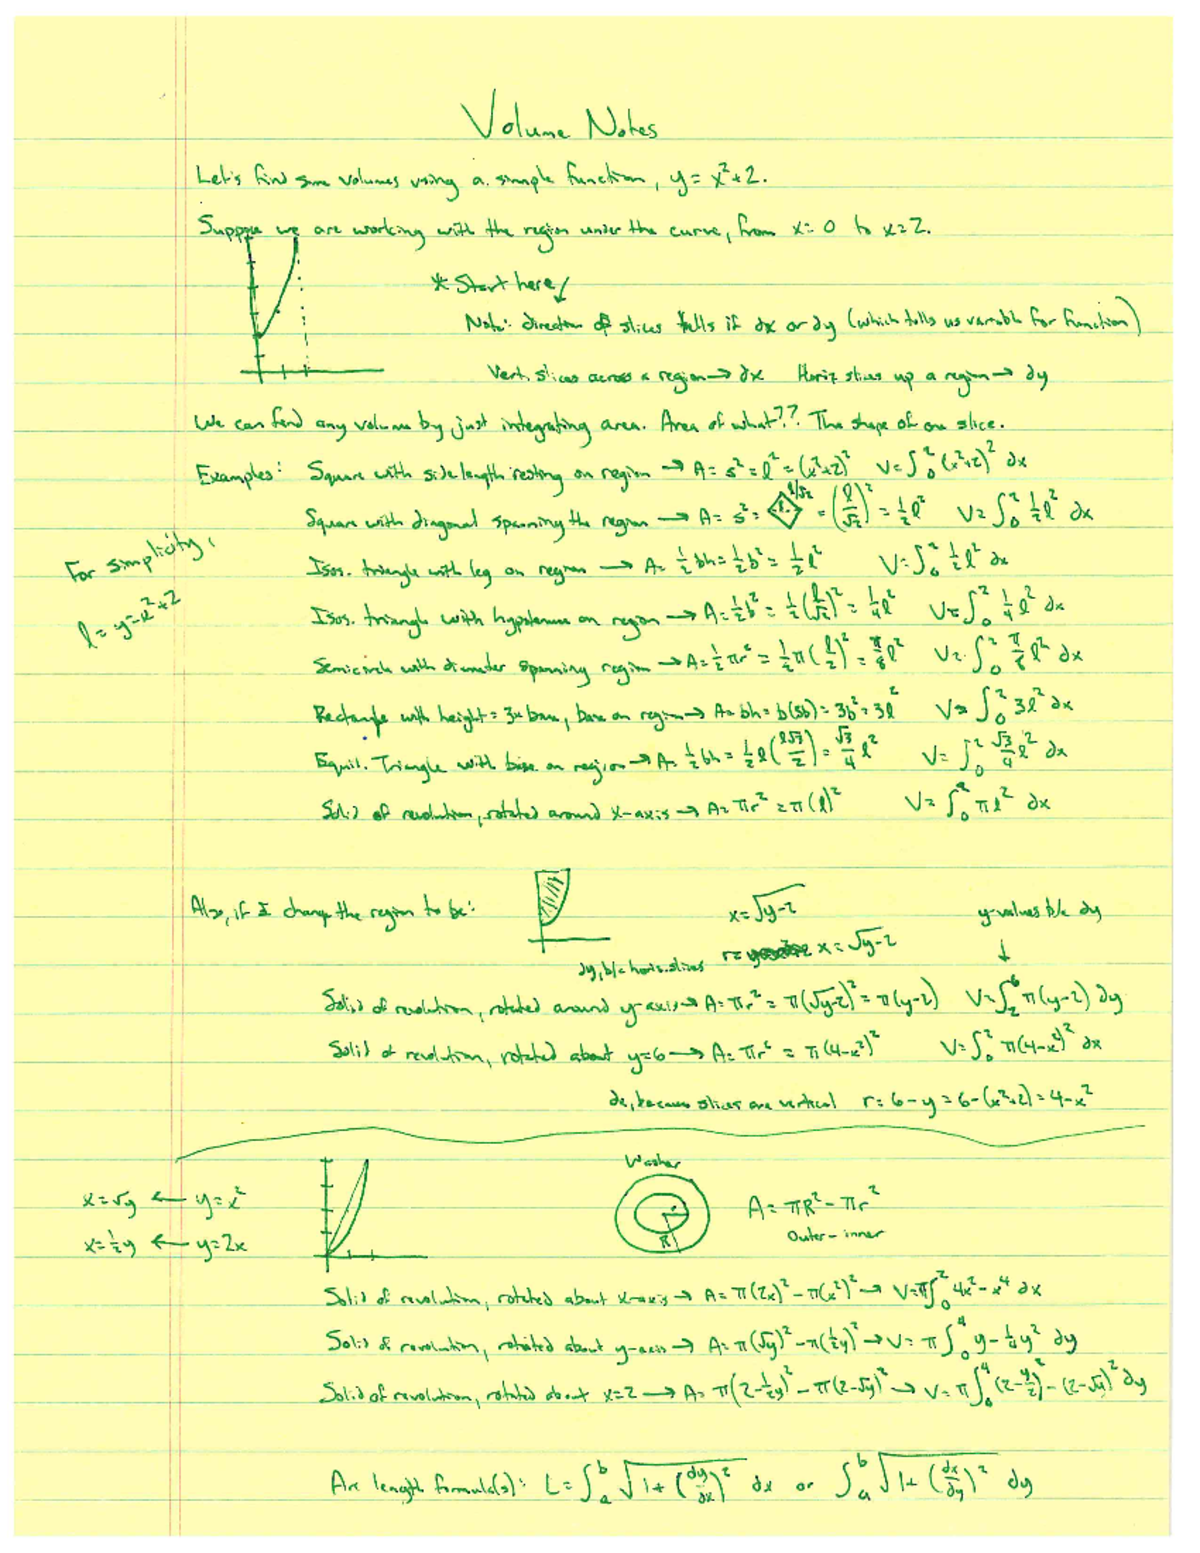 Volume Notes
Let's find some volumes using a simple function, y = x²+2.
Suppose we are working with the region under the curve, from x=0 to x=2.
* Start here!
Note: direction of slices tells if dx or dy (which tells us variable for function)
Vert. slices across a region → dx  Horiz slices up a region → dy
We can find any volume by just integrating area. Area of what?? The shape of one slice.
Examples: Square with side length resting on region → A = s² = l² = (x²+2)²  V = ∫₀² (x²+2)² dx
Square with diagonal spanning the region → A = s² = l l/√2 = (l/√2)² = ½l²  V = ∫₀² ½l² dx
For simplicity,
l = y = x²+2
Isos. triangle with leg on region → A = ½bh = ½b² = ½l²  V = ∫₀² ½l² dx
Isos. triangle with hypotenuse on region → A = ½b² = ½(l/√2)² = ¼l²  V = ∫₀² ¼l² dx
Semicircle with diameter spanning region → A = ½πr² = ½π(l/2)² = π/8 l²  V = ∫₀² π/8 l² dx
Rectangle with height = 3x base, base on region → A = bh = b(3b) = 3b² = 3l²  V = ∫₀² 3l² dx
Equil. Triangle with base on region → A = ½bh = ½l(l√3/2) = √3/4 l²  V = ∫₀² √3/4 l² dx
Solid of revolution, rotated around x-axis → A = πr² = π(l)²  V = ∫₀² πl² dx
Also, if I change the region to be:  x = √y-2  y-values b/c dy
r = x = √y-2  ↓
dy, b/c horiz. slices
Solid of revolution, rotated around y-axis → A = πr² = π(√y-2)² = π(y-2)  V = ∫₂⁶ π(y-2) dy
Solid of revolution, rotated about y=6 → A = πr² = π(4-x²)²  V = ∫₀² π(4-x²)² dx
dx, because slices are vertical  r = 6-y = 6-(x²+2) = 4-x²
Washer
x = √y ← y = x²  r  A = πR² - πr²
x = ½y ← y = 2x  R  Outer - inner
Solid of revolution, rotated about x-axis → A = π(2x)² - π(x²)² → V = π∫₀² 4x² - x⁴ dx
Solid of revolution, rotated about y-axis → A = π(√y)² - π(½y)² → V = π∫₀⁴ y - ¼y² dy
Solid of revolution, rotated about x=2 → A = π(2-½y)² - π(2-√y)² → V = π∫₀⁴ (2-y/2)² - (2-√y)² dy
Arc length formula(s): L = ∫ₐᵇ √1+(dy/dx)² dx or ∫ₐᵇ √1+(dx/dy)² dy